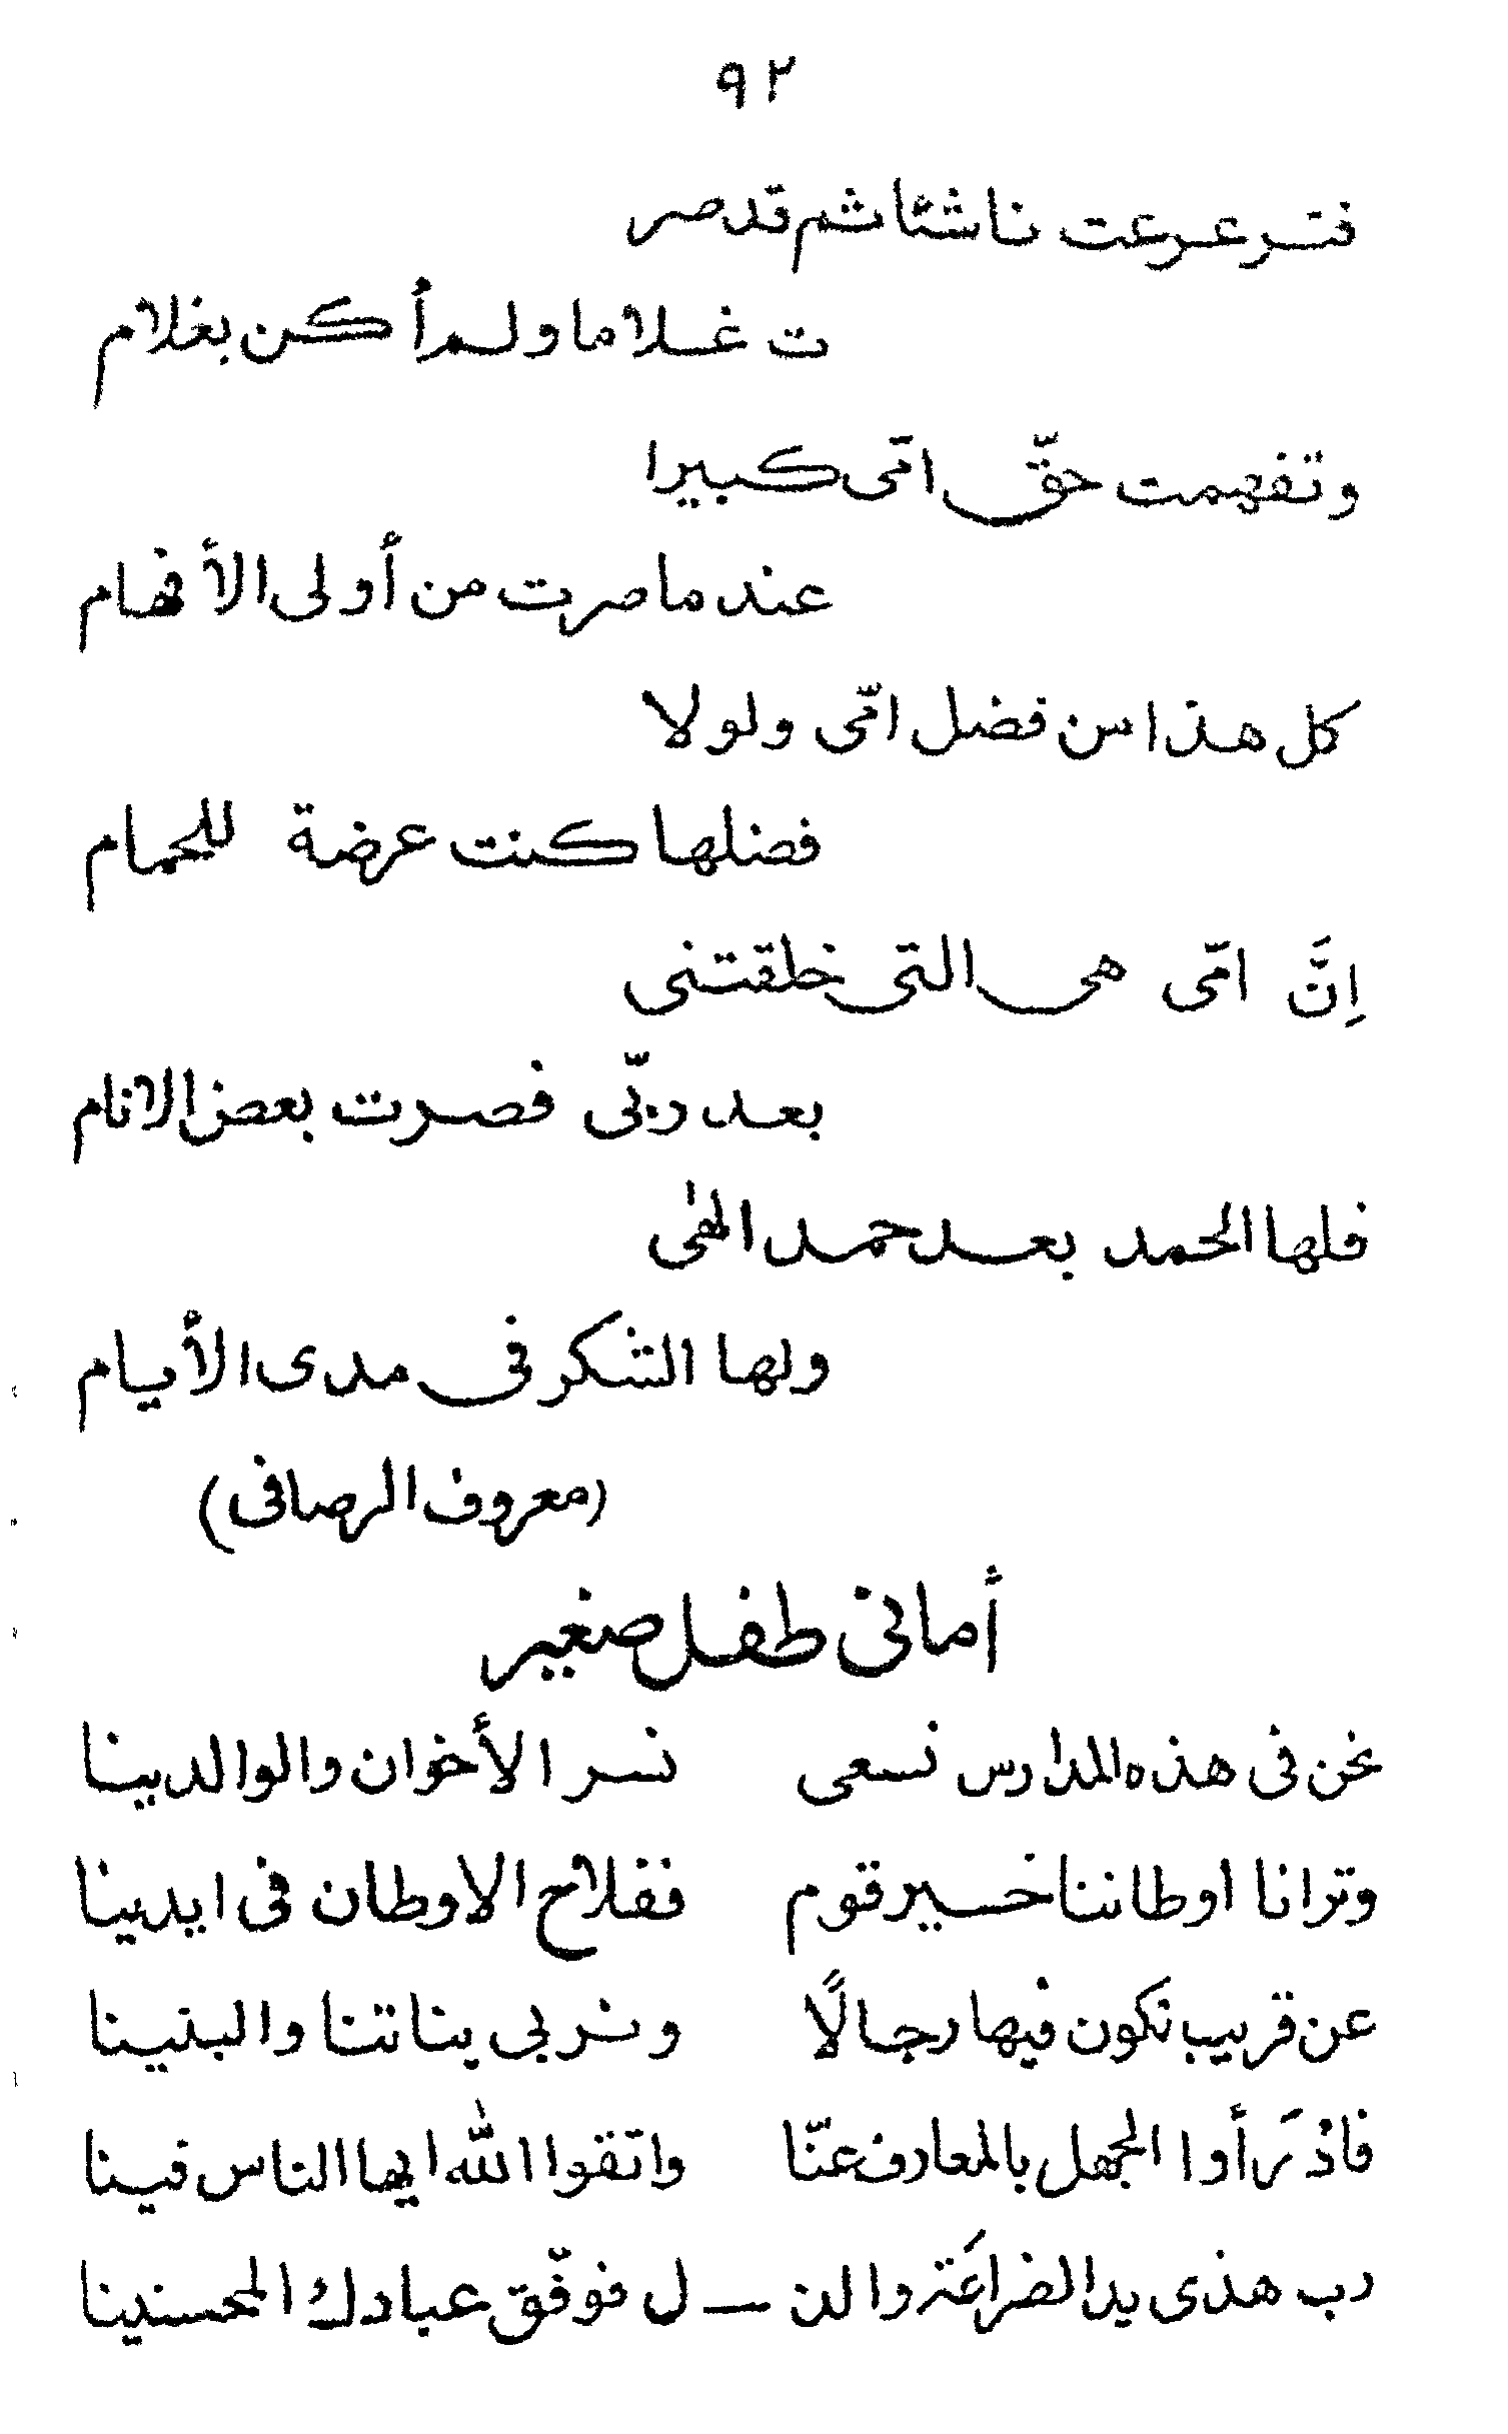 ٩٢
فترعرعت ناشئا ثم قد صر
ت غلاما ولم أكن بغلام
وتفهمت حقّ امّى كبيرا
عند ما صرت من أولى الأفهام
كل هذا من فضل امّى ولولا
فضلها كنت عرضة للحمام
اِنَّ امّى هى التى خلقتنى
بعد ربّى فصرت بعض الانام
فلها الحمد بعد حمد الهٰى
ولها الشكر فى مدى الأيام
(معروف الرصافى)
أمانى طفل صغير
نحن فى هذه المدارس نسعى نسر الأخوان والوالدينا
وترانا اوطاننا خير قوم ففلاح الاوطان فى ايدينا
عن قريب نكون فيها رجالًا ونربى بناتنا والبنينا
فادْرَأوا الجهل بالمعارف عنّا واتقوا الله ايها الناس فينا
رب هذى يد الضراعَة والذ ـــ ل فوفّق عبادك المحسنينا